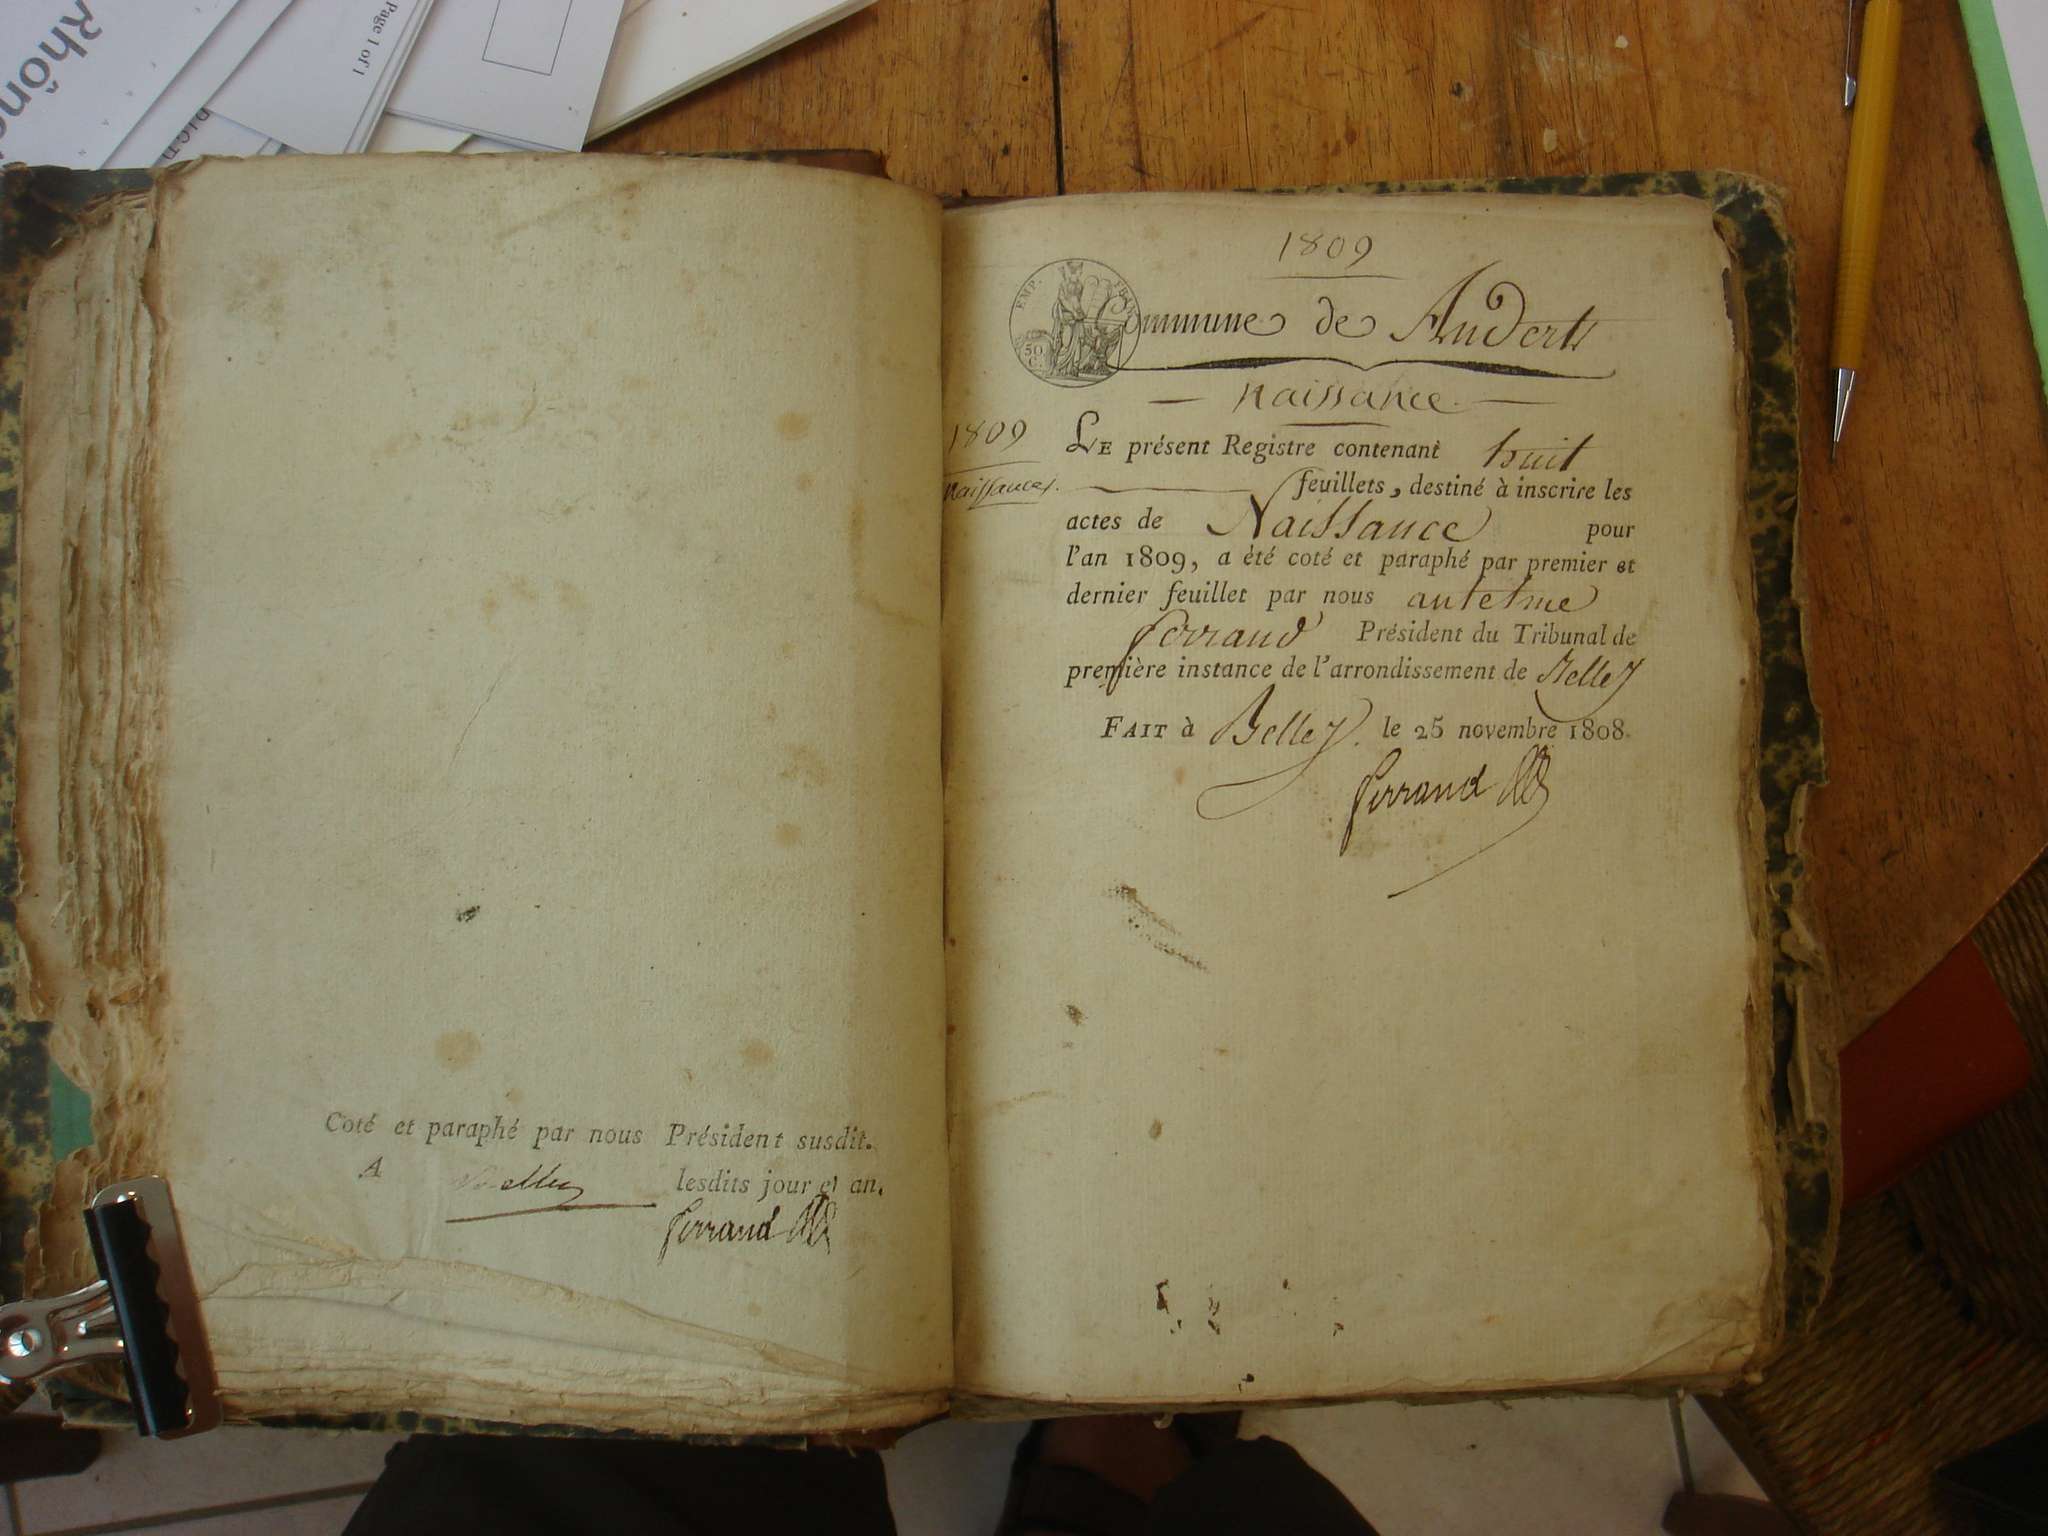 Rhône
Page 1 of 1
Coté et paraphé par nous Président susdit.
A Belley lesdits jour et an.
Ferrand
1809
EMP. FRAN.
50 C.
Commune de Anderts
naissance
1809
Naissances.
LE présent Registre contenant huit
feuillets, destiné à inscrire les
actes de Naissance pour
l'an 1809, a été coté et paraphé par premier et
dernier feuillet par nous antelme
ferrand Président du Tribunal de
première instance de l'arrondissement de Belley
FAIT à Belley. le 25 novembre 1808.
ferrand